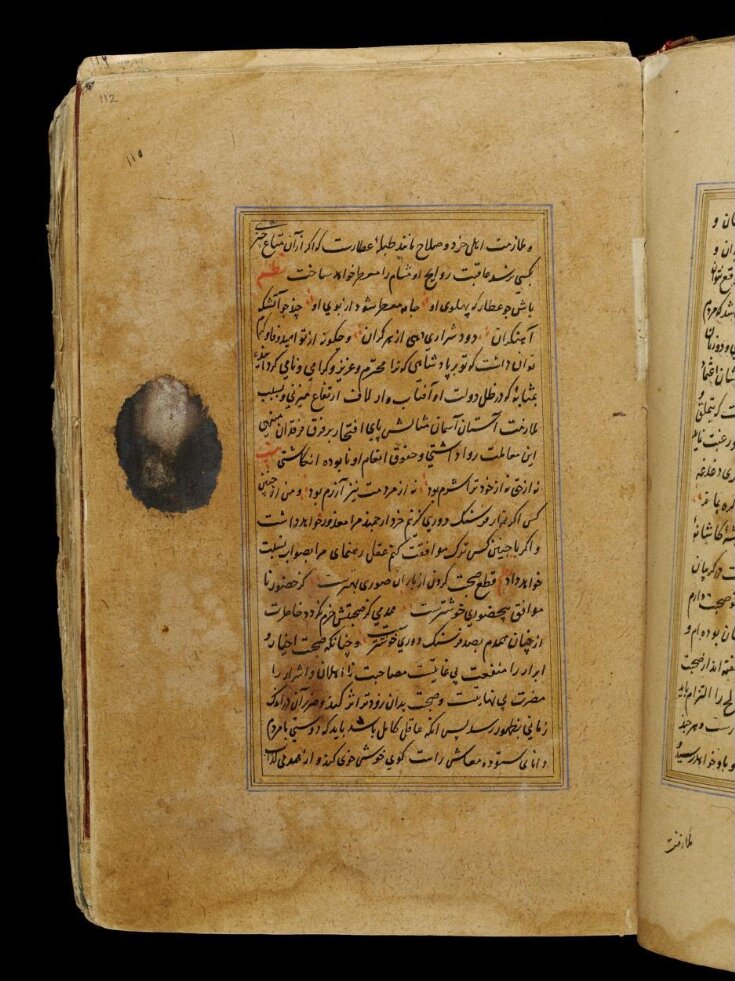 112
۱۱۵
و ملازمت اهل خرد و صلاح مانند طبلهٔ عطارست که اگر از آن متاع چیزی
بکسی نرسد عاقبت روایح او مشام را معطر خواهد ساخت نظم
باش چو عطار که پهلوی او جامه معطر شود از بوی او چند چو آتشکده
آهنگران دود و شراری دهی از هر کران و چگونه از تو امید وفا و کرم
توان داشت که تو بر پادشاهی که ترا محترم و عزیز و گرامی و نامی گردانیده
بمثابهٔ که در ظل دولت او آفتاب وار لاف ارتفاع میزنی و بسبب
ملازمت آستان آسمان مثالش پای افتخار بر فرق فرقدان مینهی
این معاملت روا داشتی و حقوق انعام او نابوده انگاشتی بیت
نه از حق نه از خود ترا شرم بود نه از مردمت نیز آزرم بود و من از چنین
کس اگر هزار فرسنگ دوری گزینم خرد ارجمند مرا معذور خواهد داشت
و اگر با چنین کس ترک موافقت کنم عقل رهنمای مرا بصواب نسبت
خواهد داد قطع صحبت کردن از یاران صوری بهترست گر حضور نا
موافق بیحضوری خوشترست همدمی کز صحبتش خرم نگردد خاطرت
از چنان همدم بصد فرسنگ دوری خوشترست و چنانکه صحبت اخیار و
ابرار را منفعت بی غایتست مصاحبت نااهلان و اشرار را
مضرت بی نهایتست و صحبت بدان زودتر اثر کند و ضرر آن در اندک
زمانی بظهور رسد پس آنکه عاقل کامل باشد باید که دوستی با مردم
دانای ستوده معاش راست گوی خوش خوی کند و از همدمی کذاب
ملازمت